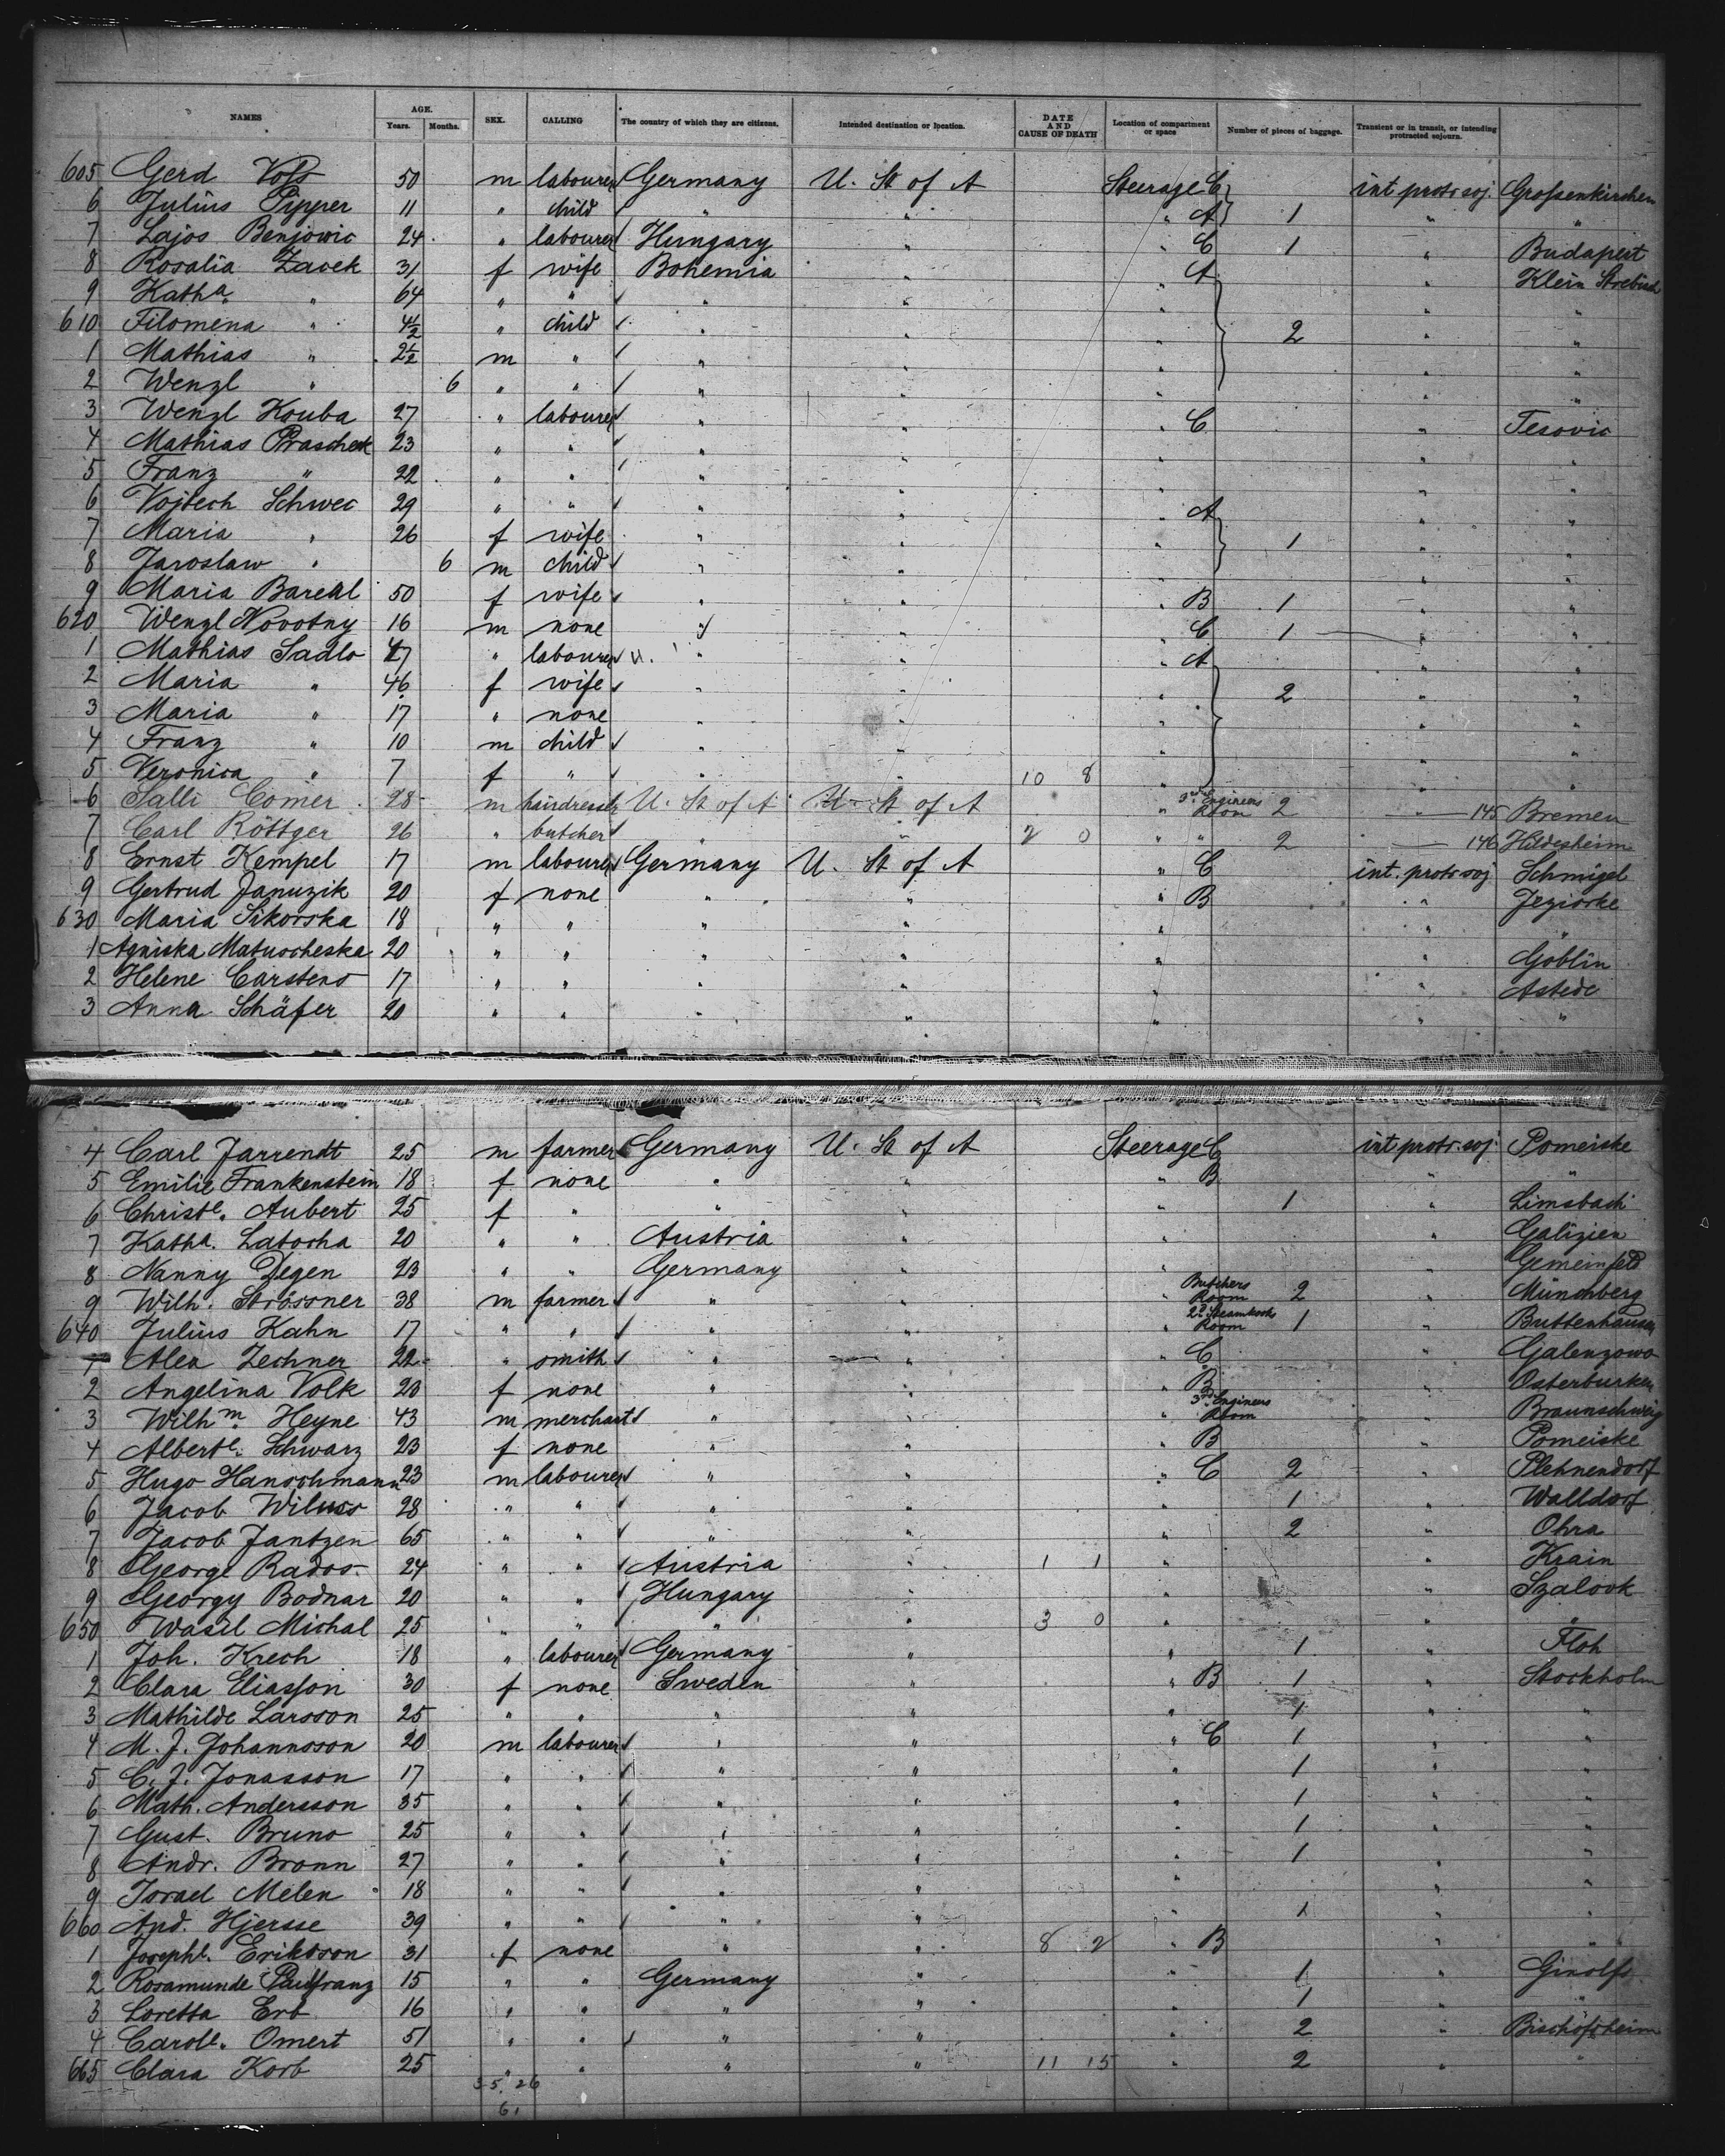 NAMES AGE. Years. Months. SEX. CALLING The country of which they are citizens. Intended destination or location. DATE AND CAUSE OF DEATH Location of compartment or space Number of pieces of baggage. Transient or in transit, or intending protracted sojourn.
605 Gerd Vols 50 m labourer Germany U. St of A Steerage C int protr soj. Großenkirchen
6 Julius Pipper 11 " child " " " A 1 " "
7 Lajos Benjovic 24 " labourer Hungary " " C 1 " Budapest
8 Rosalia Zacek 31 f wife Bohemia " " A " Klein
9 Katha " 64 " " " " " " "
610 Filomena " 4½ " child " " " 2 " "
1 Mathias " 2½ m " " " " " "
2 Wenzl " 6 " " " " " " "
3 Wenzl Kouba 27 " labourer " " " C " Tesovic
4 Mathias Praschek 23 " " " " " " "
5 Franz " 22 " " " " " " "
6 Vojtech Schwec 29 " " " " " A " "
7 Maria " 26 f wife " " " 1 " "
8 Jaroslaw " 6 m child " " " " "
9 Maria Bareal 50 f wife " " " B 1 " "
620 Wenzl Novotny 16 m none " " " C 1 " "
1 Mathias Sadlo 47 " labourer " " " A " "
2 Maria " 46 f wife " " " 2 " "
3 Maria " 17 " none " " " " "
4 Franz " 10 m child " " " " "
5 Veronica " 7 f " " " 10 8 " " "
6 Salli Comer 28 m hairdresser U. St of A U. St of A " 3rd Engineers Room 2 " 145 Bremen
7 Carl Röttger 26 " butcher " " 2 0 " " 2 146 Hildesheim
8 Ernst Kempel 17 m labourer Germany U. St of A " C int. protr soj Schmigel
9 Gertrud Januzik 20 f none " " " B " Jeziorke
630 Maria Sikorska 18 " " " " " " "
1 Agniska Matuscheska 20 " " " " " " Goblin
2 Helene Carstens 17 " " " " " " Astede
3 Anna Schäfer 20 " " " " " " "
4 Carl Jarrendt 25 m farmer Germany U. St of A Steerage C int protr. soj. Pomeiske
5 Emilie Frankenstein 18 f none " " " B " "
6 Christe. Aubert 25 f " " " " 1 " Limsbach
7 Katha. Latocha 20 " " Austria " " " Galizien
8 Nanny Degen 23 " " Germany " " " Gemeinfeld
9 Wilh. Strössner 38 m farmer " " " Butchers Room 2 " Münchberg
640 Julius Kahn 17 " " " " " 2d Steamcooks Room 1 " Buttenhausen
1 Alex Zechner 22 " smith " " " C " Galenzowo
2 Angelina Volk 20 f none " " " B " Osterburken
3 Wilhm Heyne 43 m merchant " " " 3rd Engineers Room " Braunschweig
4 Alberte. Schwarz 23 f none " " " B " Pomeiske
5 Hugo Hanschmann 23 m labourer " " " C 2 " Plehnendorf
6 Jacob Wilms 28 " " " " " 1 " Walldorf
7 Jacob Jantzen 65 " " " " " 2 " Ohra
8 George Rados 24 " " Austria " 1 1 " " Krain
9 Georgy Bodnar 20 " " Hungary " " " Szalook
650 Wasil Michal 25 " " " " 3 0 " " "
1 Joh. Krech 18 " labourer Germany " " 1 " Floh
2 Clara Eliasson 30 f none Sweden " " B 1 " Stockholm
3 Mathilde Larsson 25 " " " " " 1 " "
4 M. J. Johannsson 20 m labourer " " " C 1 " "
5 C. J. Jonasson 17 " " " " " 1 " "
6 Math. Andersson 35 " " " " " 1 " "
7 Gust. Bruno 25 " " " " " 1 " "
8 Andr. Bronn 27 " " " " " 1 " "
9 Israel Melen 18 " " " " " " "
660 And. Hjersse 39 " " " " " 1 " "
1 Josephe. Eriksson 31 f none " " 8 2 " B " "
2 Rosamunde Paulfranz 15 " " Germany " " 1 " Ginolfs
3 Loretta Erb 16 " " " " " 1 " "
4 Carole. Omert 51 " " " " " 2 " Bischofsheim
665 Clara Korb 25 " " " " 11 15 " 2 " "
35. 26
61